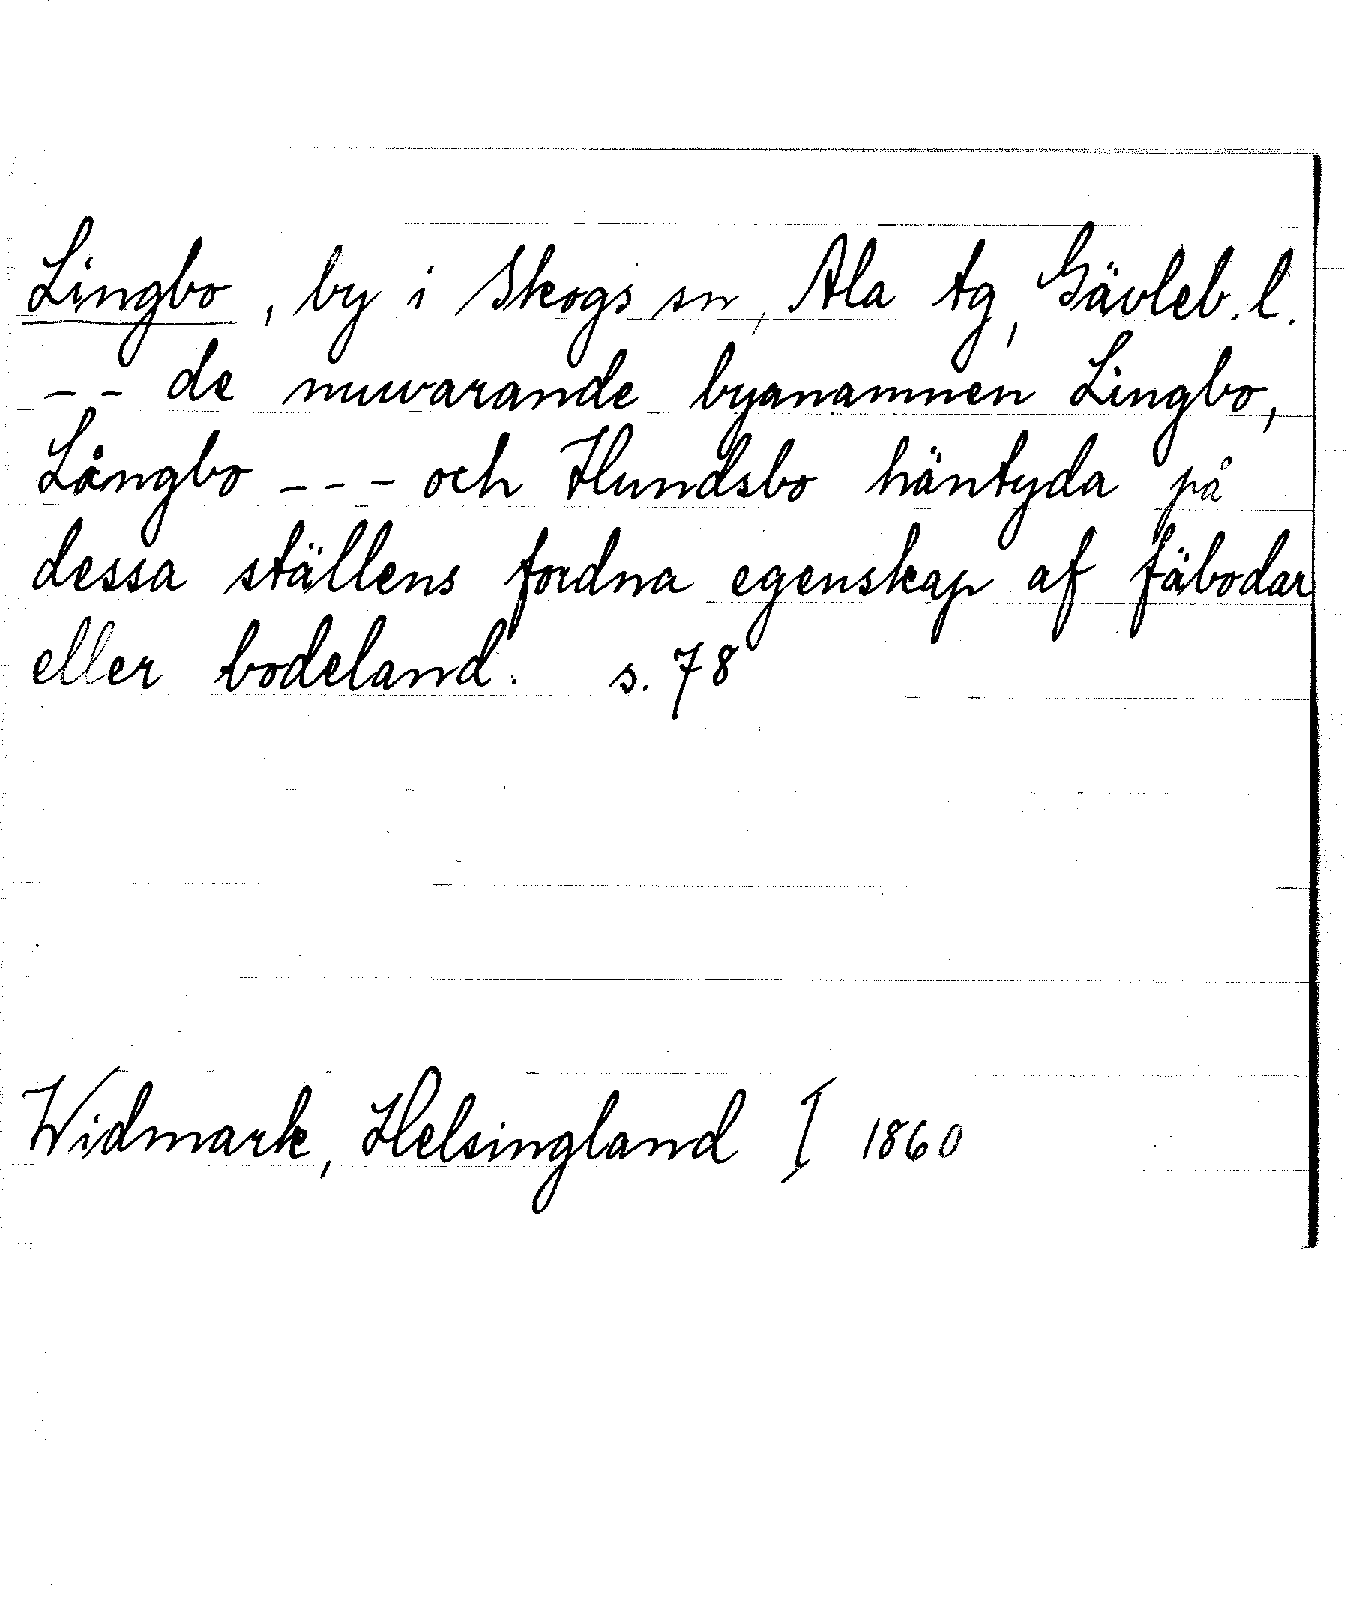 Lingbo, by i Skogs sn, Ala tg, Gävleb. l.
-- de nuvarande byanamnen Lingbo,
Långbo --- och Hundsbo häntyda på
dessa ställens fordna egenskap af fäbodar
eller bodeland. s. 78
Widmark, Helsingland I 1860